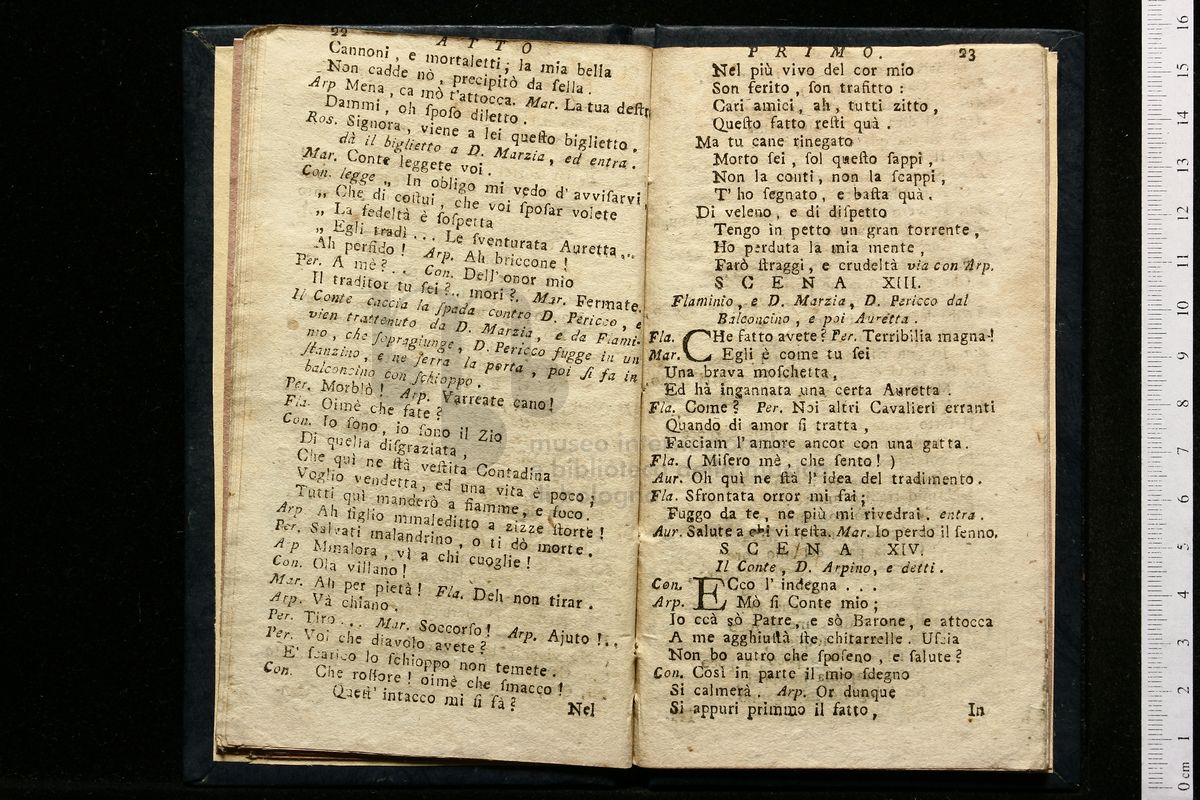 22
ATTO
Cannoni, e mortaletti; la mia bella
Non cadde nò, precipitò da ſella.
Arp Mena, ca mò t'attocca. Mar. La tua deſtr
Dammi, oh ſpoſo diletto.
Ros. Signora, viene a lei queſto biglietto.
dà il biglietto a D. Marzia, ed entra.
Mar. Conte leggete voi.
Con. legge „ In obligo mi vedo d' avviſarvi
„ Che di coſtui, che voi ſpoſar volete
„ La fedeltà è ſoſpetta
„ Egli tradì... Le ſventurata Auretta...
Ah perfido! Arp. Ah briccone!
Per. A mè?.. Con. Dell' onor mio
Il traditor tu ſei?.. mori?. Mar. Fermate.
Il Conte caccia la ſpada contro D. Pericco, e
vien trattenuto da D. Marzia, e da Flami-
nio, che ſopragiunge, D. Pericco fugge in un
ſtanzino, e ne ſerra la porta, poi ſi fa in
balconcino con ſchioppo.
Per. Morblò! Arp. Varreate cano!
Fla. Oimè che fate?
Con. Io ſono, io ſono il Zio
Di quella diſgraziata,
Che quì ne ſtà veſtita Contadina
Voglio vendetta, ed una vita è poco;
Tutti quì manderò a fiamme, e foco.
Arp Ah figlio mmaleditto a zizze ſtorte!
Per. Salvati malandrino, o ti dò morte.
Arp Mmalora, vì a chi cuoglie!
Con. Ola villano!
Mar. Ah per pietà! Fla. Deh non tirar.
Arp. Và chiano.
Per. Tiro... Mar. Soccorſo! Arp. Ajuto!..
Per. Voi che diavolo avete?
E' ſcarico lo ſchioppo non temete.
Con. Che roſſore! oimè che ſmacco!
Queſt' intacco mi ſi fà?
Nel
PRIMO.
23
Nel più vivo del cor mio
Son ferito, ſon trafitto:
Cari amici, ah, tutti zitto,
Queſto fatto reſti quà.
Ma tu cane rinegato
Morto ſei, ſol queſto ſappi,
Non la conti, non la ſcappi,
T' ho ſegnato, e baſta quà.
Di veleno, e di diſpetto
Tengo in petto un gran torrente,
Ho perduta la mia mente,
Farò ſtraggi, e crudeltà via con Arp.
SCENA XIII.
Flaminio, e D. Marzia, D. Pericco dal
Balconcino, e poi Auretta.
Fla. CHe fatto avete? Per. Terribilia magna!
Mar. Egli è come tu ſei
Una brava moſchetta,
Ed hà ingannata una certa Auretta.
Fla. Come? Per. Noi altri Cavalieri erranti
Quando di amor ſi tratta,
Facciam l'amore ancor con una gatta.
Fla. (Miſero mè, che ſento!)
Aur. Oh quì ne ſtà l'idea del tradimento.
Fla. Sfrontata orror mi fai;
Fuggo da te, ne più mi rivedrai. entra.
Aur. Salute a chi vi reſta. Mar. Io perdo il ſenno.
SCENA XIV.
Il Conte, D. Arpino, e detti.
Con. ECco l' indegna...
Arp. Mò ſi Conte mio;
Io ccà sò Patre, e sò Barone, e attocca
A me agghiuſtà ſte chitarrelle. Uſcia
Non bo autro che ſpoſeno, e ſalute?
Con. Così in parte il mio ſdegno
Si calmerà. Arp. Or dunque
Si appuri primmo il fatto,
In
16
15
14
13
12
11
10
9
8
7
6
5
4
3
2
1
0 cm